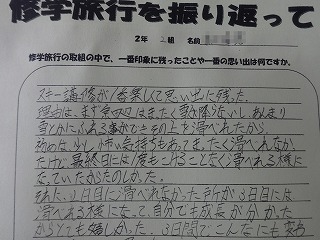 修学旅行を振り返って
2年 組 名前
修学旅行の取組の中で、一番印象に残ったことや一番の思い出は何ですか。
スキー講習が1番楽しくて思い出に残った。
理由は、まず まったく雪が降らないし、あまり
雪とかにふれる事がでてその上を滑べれたから。
初めは少し怖い気持ちもあってまったく滑べれなか
たけど、最終日には1度もこけることなく滑べれる様に
なっていたからたのしかった。
それに、1日目に滑べれなかった所が3日目には
滑べれる様になって、自分でも成長が分かった
からとても嬉しかった。3日間でこんなにも変わ